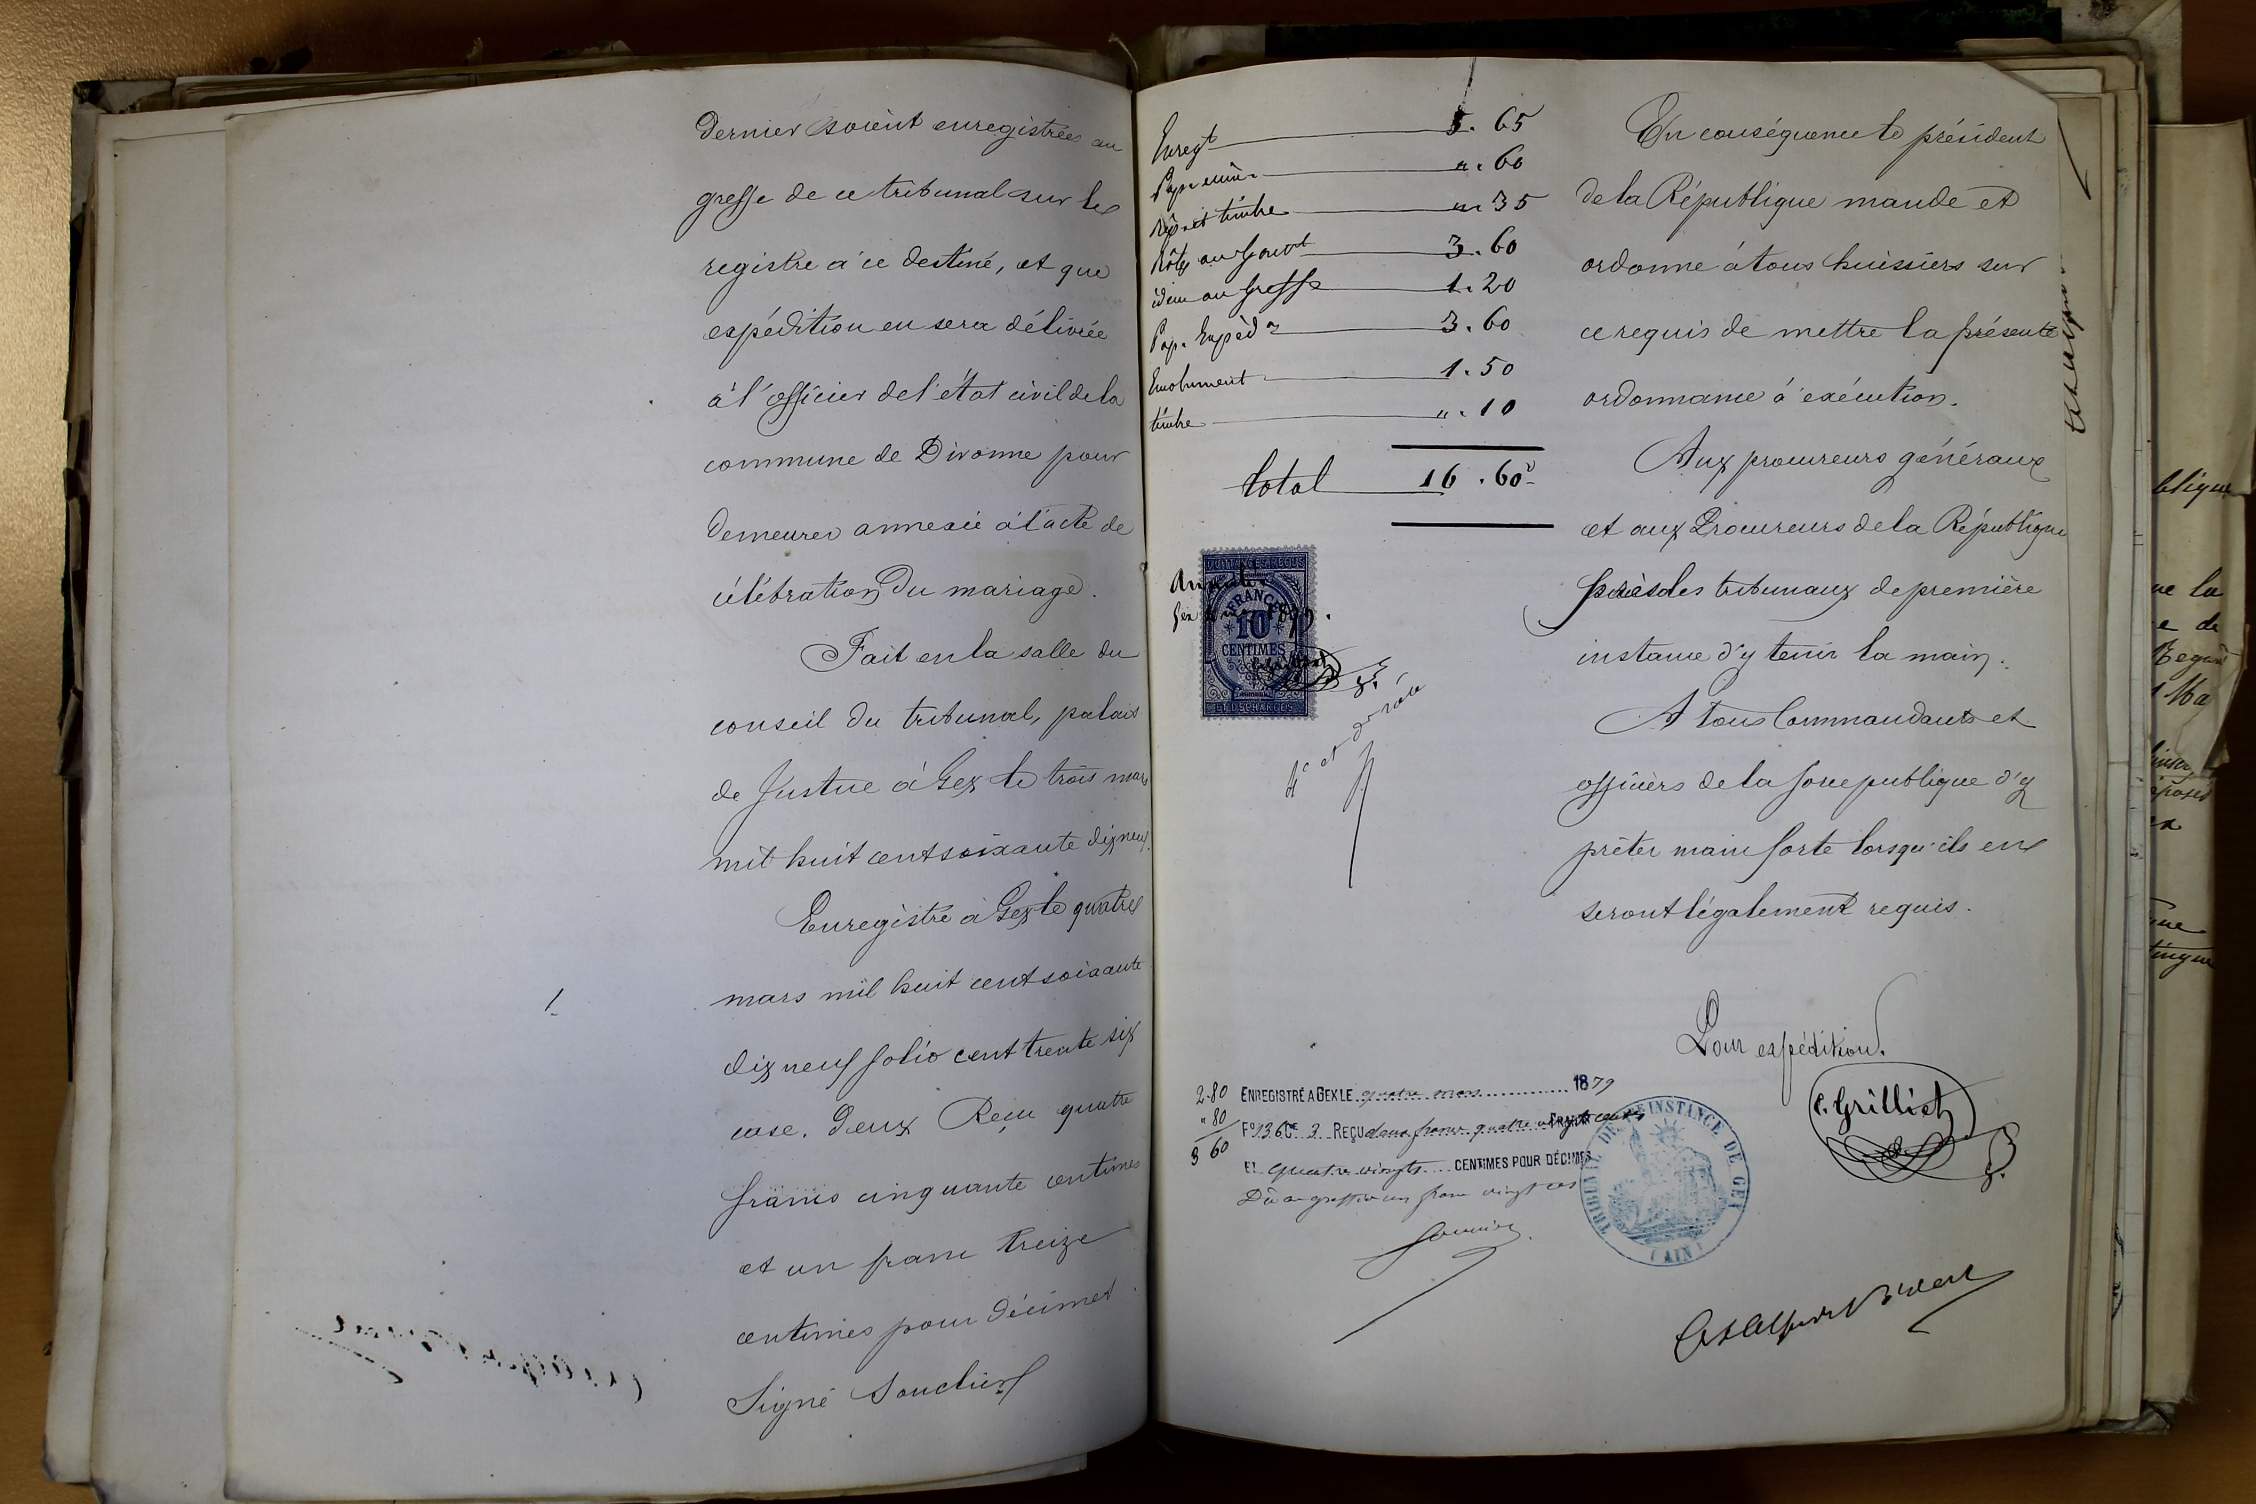 dernier soient enregistrées au
greffe de ce tribunal sur le
registre à ce destiné, et que
expédition en sera délivrée
à l'officier de l'état civil de la
commune de Divonne pour
demeurer annexée à l'acte de
célébration du mariage.
Fait en la salle du
conseil du tribunal, palais
de Justice à Gex le trois mars
mil huit cent soixante dix neuf.
Enregistré à Gex le quatre
mars mil huit cent soixante
dix neuf folio cent trente six
case. deux Reçu quatre
francs cinquante centimes
et un franc treize
centimes pour décimes.
Signé Souclier
1
Enregt 5. 65
Pap. minu. ". 60
Rép. et timbre ". 35
Rôles au Gouvt 3. 60
idem au Greffe 1. 20
Pap. Expédon 3. 60
Emolument 1. 50
timbre ". 10
total 16. 60
QUITTANCES REÇUS
FRANCE
10
CENTIMES
ET DECHARGES
Annulé
Gex 1879.
4e et der rôle
En conséquence le président
de la République mande et
ordonne à tous huissiers sur
ce requis de mettre la présente
ordonnance à exécution.
Aux procureurs généraux
et aux Procureurs de la République
près les tribunaux de première
instance d'y tenir la main.
A tous Commandants et
officiers de la force publique d'y
prêter main forte lorsqu'ils en
seront légalement requis.
Pour expédition.
C. Grillet
2.80
" 80
3 60
ENREGISTRÉ A GEX LE quatre mars 1879
Fo 136 Ce 3 REÇU deux francs quatre vingts centes
ET quatre vingts CENTIMES POUR DÉCIMES
Dû au greffier un franc vingt ces
TRIBUNAL DE 1ERE INSTANCE DE GEX
(AIN)
blique
ne la
e de